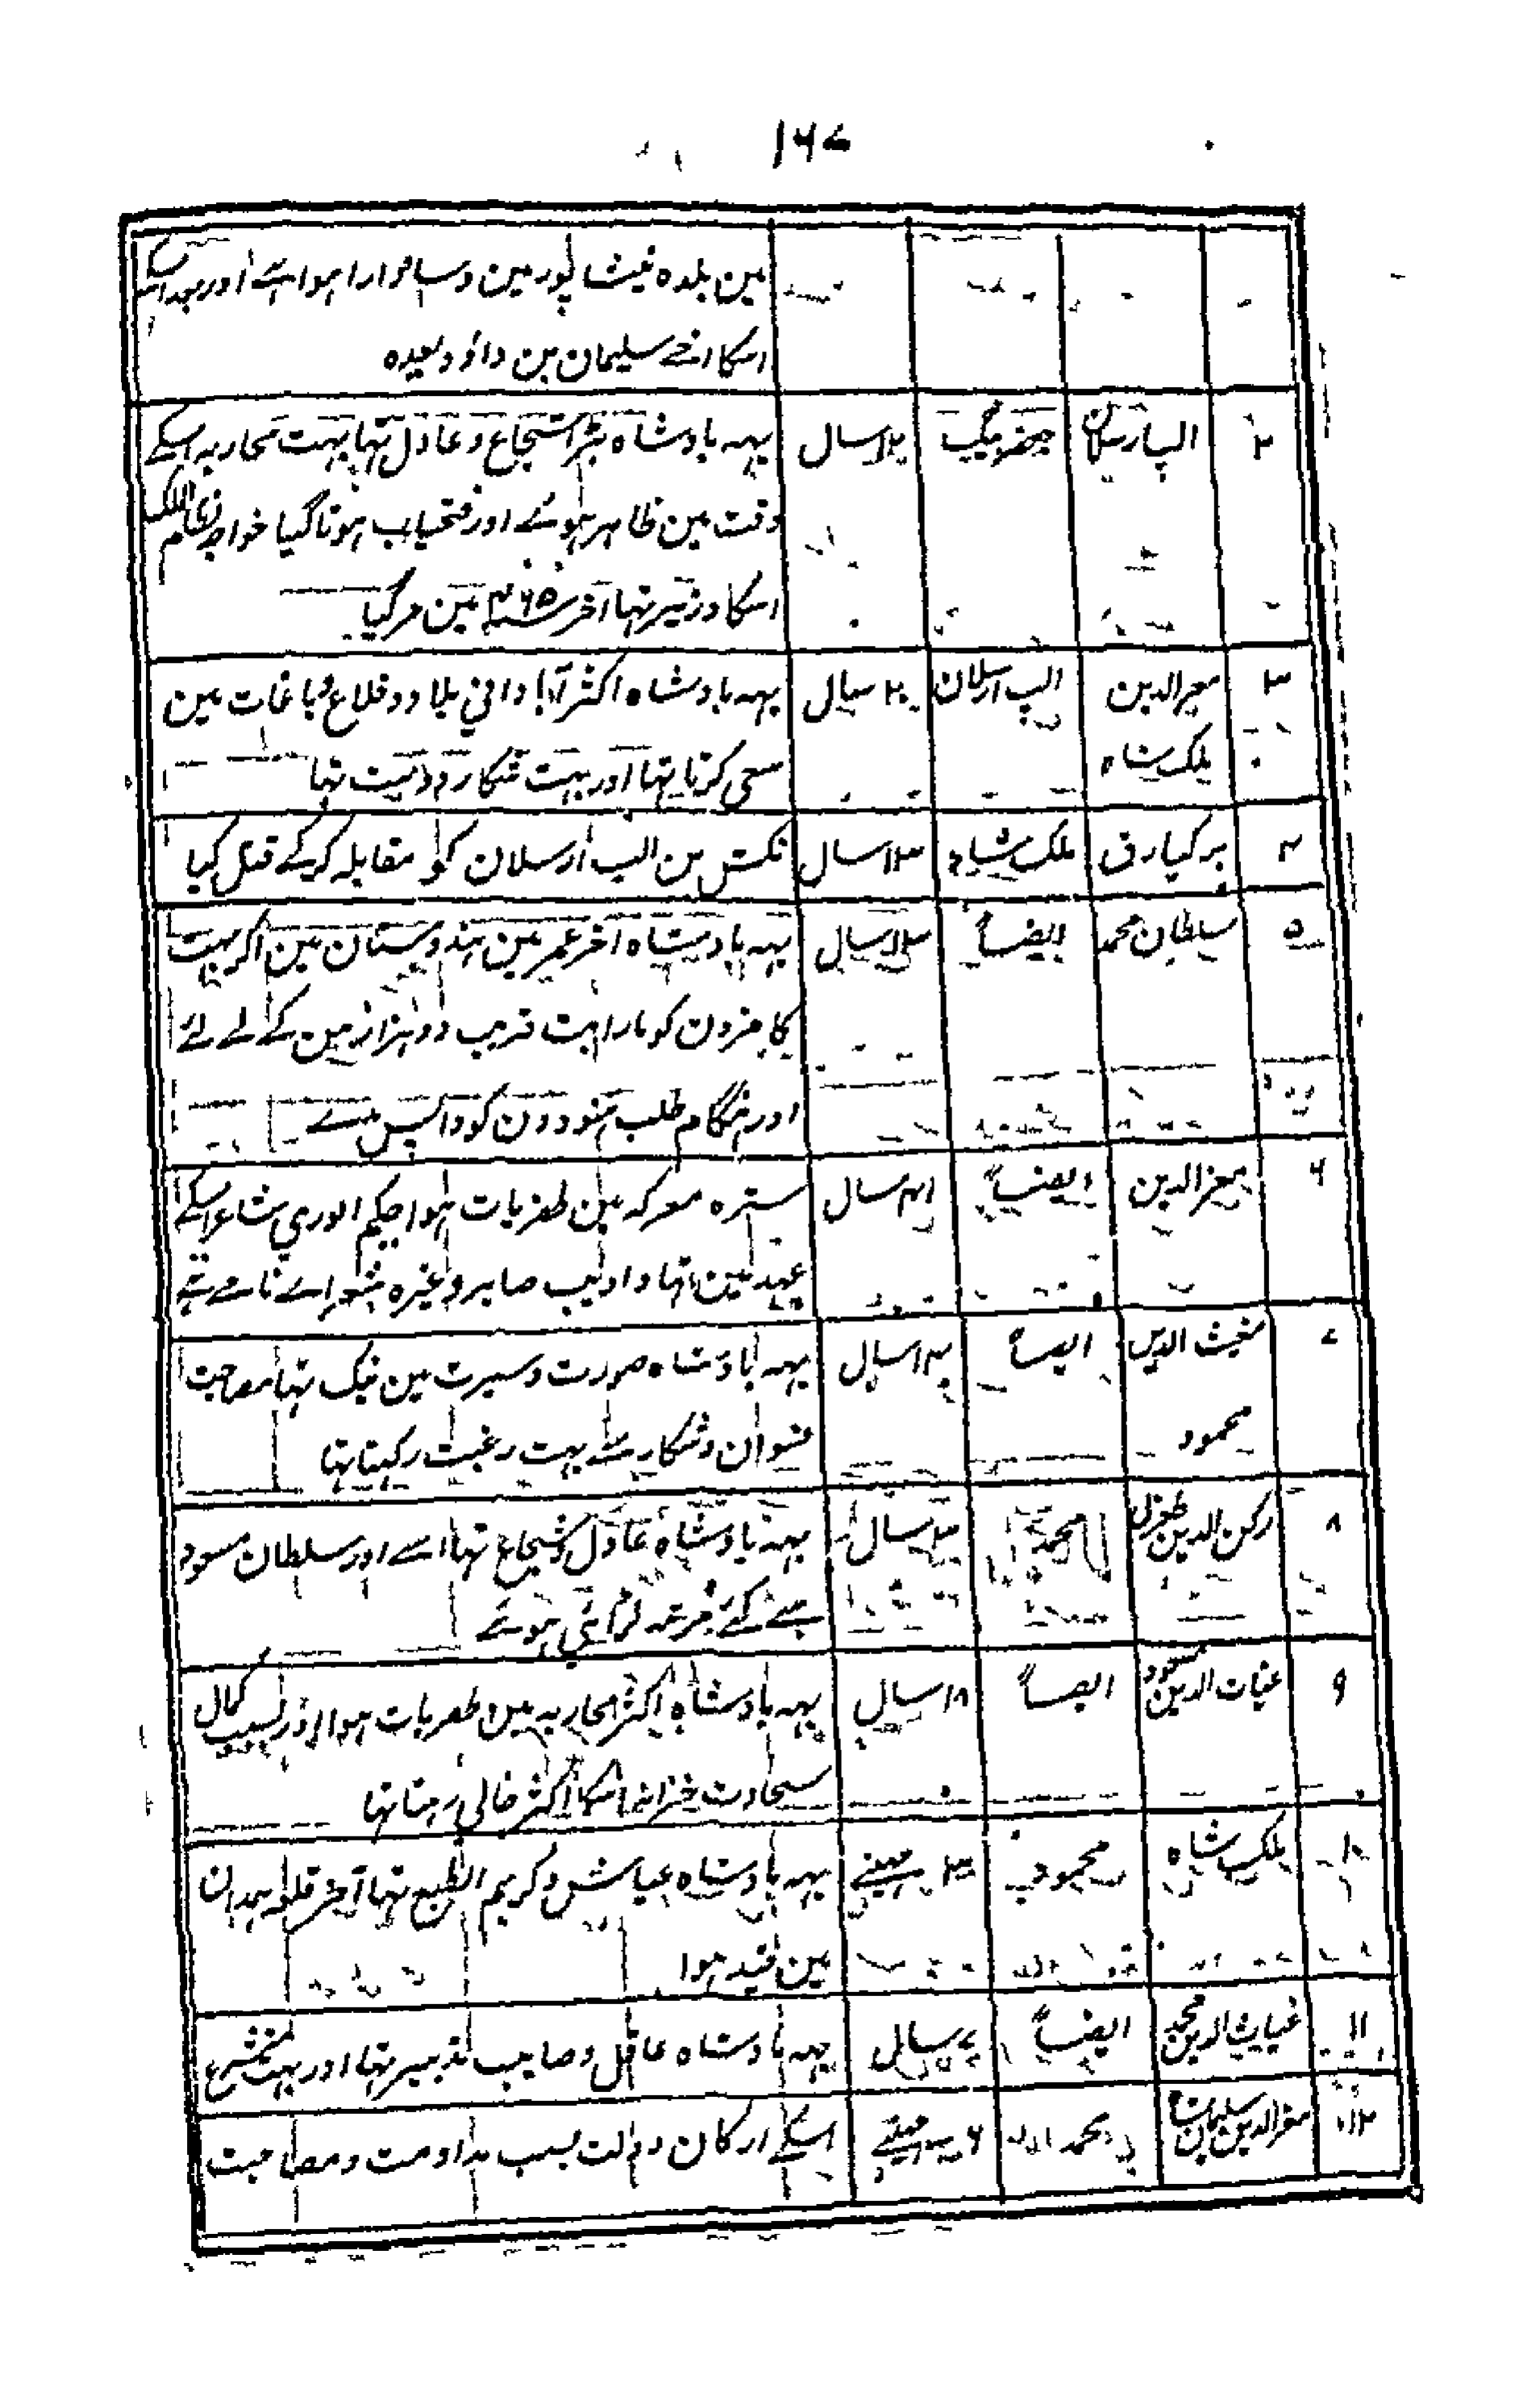 ۱۶۷
مین بلدہ نیشاپور مین وسادہ آرا ہوا ہے اور بعد اسکے
اسکا اخے سلیمان بن داؤد بعیدہ
۲ الپارسلان جعفر بیگ ۱۲ سال یہہ بادشاہ بڑا شجاع و عادل تہا بہت محاربہ اسکے
وقت مین ظاہر ہوئے اور فتحیاب ہوتا گیا خواجہ نظام الملک
اسکا وزیر تہا آخر سنہ ۴۶۵ مین مرگیا
۳ معز الدین الپ ارسلان ۲۰ سال یہہ بادشاہ اکثر آبادانی بلاد و قلاع و باغات مین
ملک شاہ سعی کرتا تہا اور بہت شکار دوست تہا
۴ برکیارق ملک شاہ ۱۳ سال تکش بن الب ارسلان کو مقابلہ کرکے قتل کیا
۵ سلطان محمد ایضاً ۱۳ سال یہہ بادشاہ آخر عمر مین ہندوستان مین آکر بہت
کافرون کو مارا بت قریب دو ہزار من کے لے لئے
اور ہنگام طلب ہنودون کو واپس
۶ معز الدین ایضاً ۴۱ سال سترہ معرکہ مین ظفریاب ہوا حکیم انوری شاعر اسکے
عہد مین تہا و ادیب صابر وغیرہ شعراے نامے تہے
۷ مغیث الدین ایضاً ۱۴ سال یہہ بادشاہ صورت و سیرت مین نیک تہا مصاحبت
محمود نسوان و شکار سے بہت رغبت رکہتا تہا
۸ رکن الدین طغرل محمد ۳ سال یہہ بادشاہ عادل و شجاع تہا اسے اور سلطان مسعود
سے کئے مرتبہ لڑائی ہوئے
۹ غیاث الدین مسعود ایضاً ۱۸ سال یہہ بادشاہ اکثر محاربہ مین ظفریاب ہوا اور بسبب کمال
سخاوت خزانہ اسکا اکثر خالی رہتا تہا
۱۰ ملک شاہ محمود ۳ مہینے یہہ بادشاہ عیاش و کریم الطبع تہا آخر قلعہ ہمدان
مین قید ہوا
۱۱ غیاث الدین محمد ایضاً ۷ سال یہہ بادشاہ عاقل و صایب تدبیر تہا اور بہت متشرع
۱۲ معز الدین سلیمان شاہ محمد ۶ مہینے اسکے ارکان دولت بسبب مداومت و مصاحبت